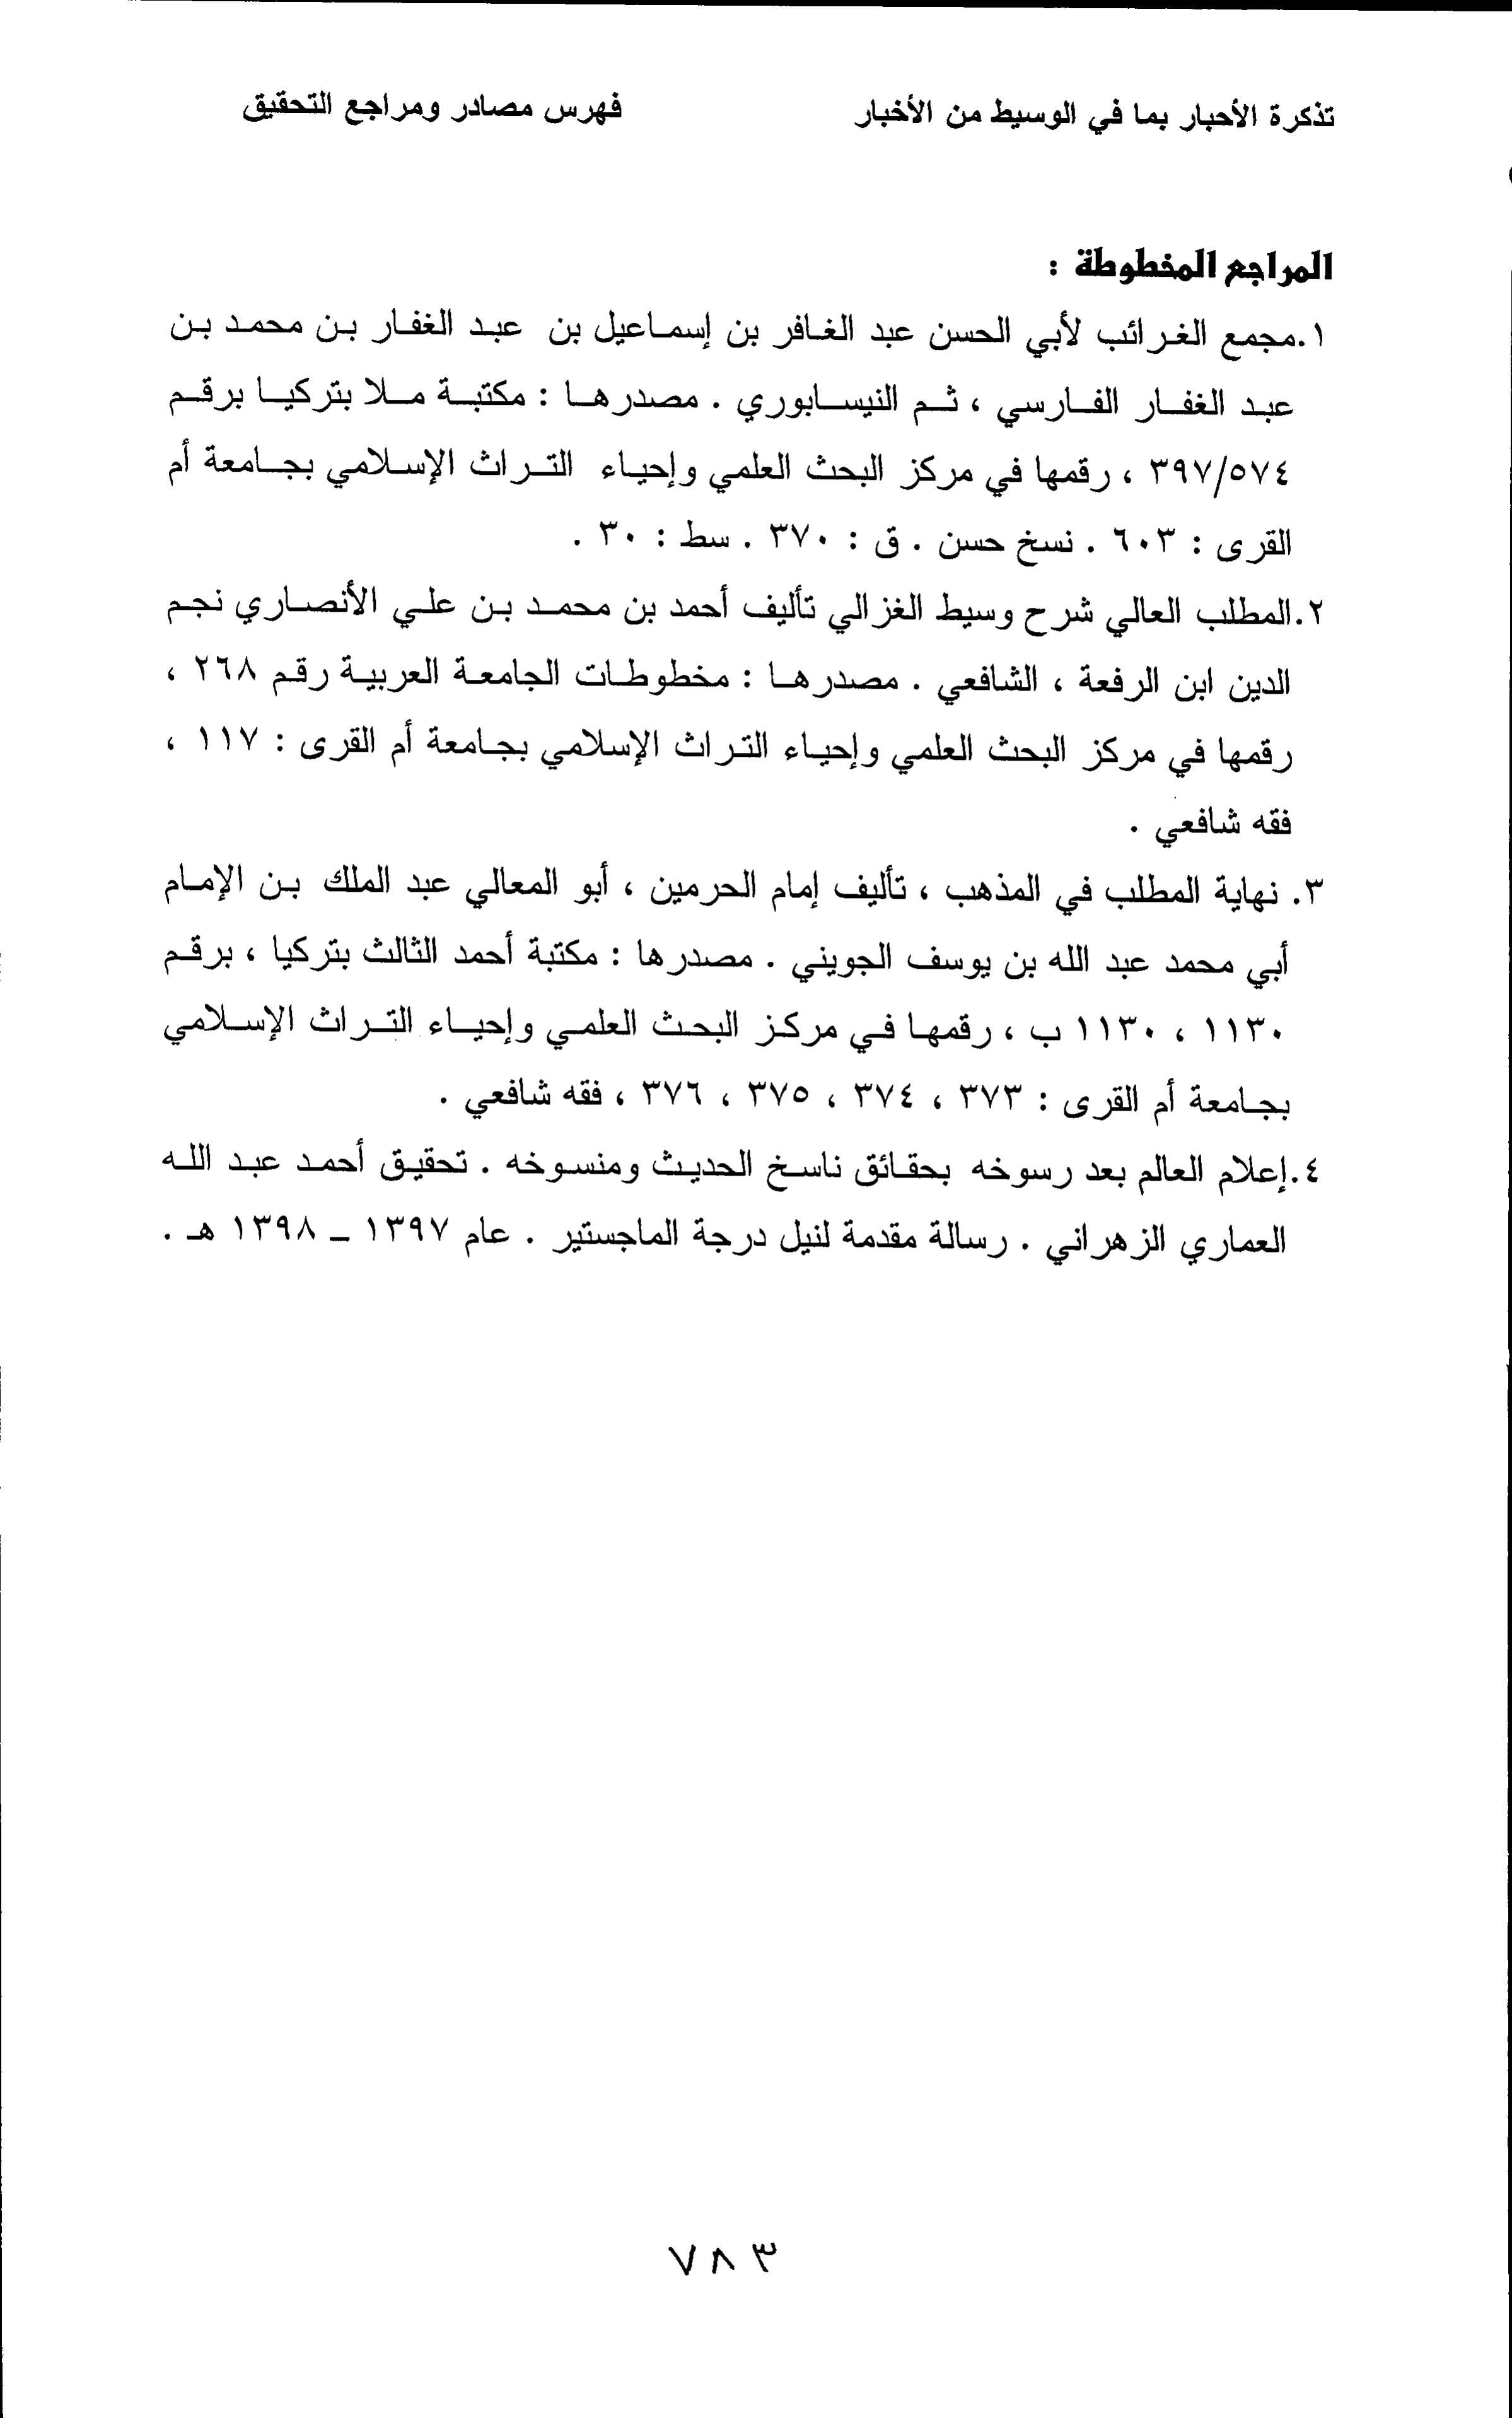 تذكرة الأحبار بما في الوسيط من الأخبار فهرس مصادر ومراجع التحقيق
المراجع المخطوطة :
١.مجمع الغرائب لأبي الحسن عبد الغافر بن إسماعيل بن عبد الغفار بن محمد بن
عبد الغفار الفارسي ، ثم النيسابوري . مصدرها : مكتبة ملا بتركيا برقم
٣٩٧/٥٧٤ ، رقمها في مركز البحث العلمي وإحياء التراث الإسلامي بجامعة أم
القرى : ٦٠٣ . نسخ حسن . ق : ٣٧٠ . سط : ٣٠ .
٢.المطلب العالي شرح وسيط الغزالي تأليف أحمد بن محمد بن علي الأنصاري نجم
الدين ابن الرفعة ، الشافعي . مصدرها : مخطوطات الجامعة العربية رقم ٢٦٨ ،
رقمها في مركز البحث العلمي وإحياء التراث الإسلامي بجامعة أم القرى : ١١٧ ،
فقه شافعي .
٣. نهاية المطلب في المذهب ، تأليف إمام الحرمين ، أبو المعالي عبد الملك بن الإمام
أبي محمد عبد الله بن يوسف الجويني . مصدرها : مكتبة أحمد الثالث بتركيا ، برقم
١١٣٠ ، ١١٣٠ ب ، رقمها في مركز البحث العلمي وإحياء التراث الإسلامي
بجامعة أم القرى : ٣٧٣ ، ٣٧٤ ، ٣٧٥ ، ٣٧٦ ، فقه شافعي .
٤.إعلام العالم بعد رسوخه بحقائق ناسخ الحديث ومنسوخه . تحقيق أحمد عبد الله
العماري الزهراني . رسالة مقدمة لنيل درجة الماجستير . عام ١٣٩٧ – ١٣٩٨ هـ .
٧٨٣